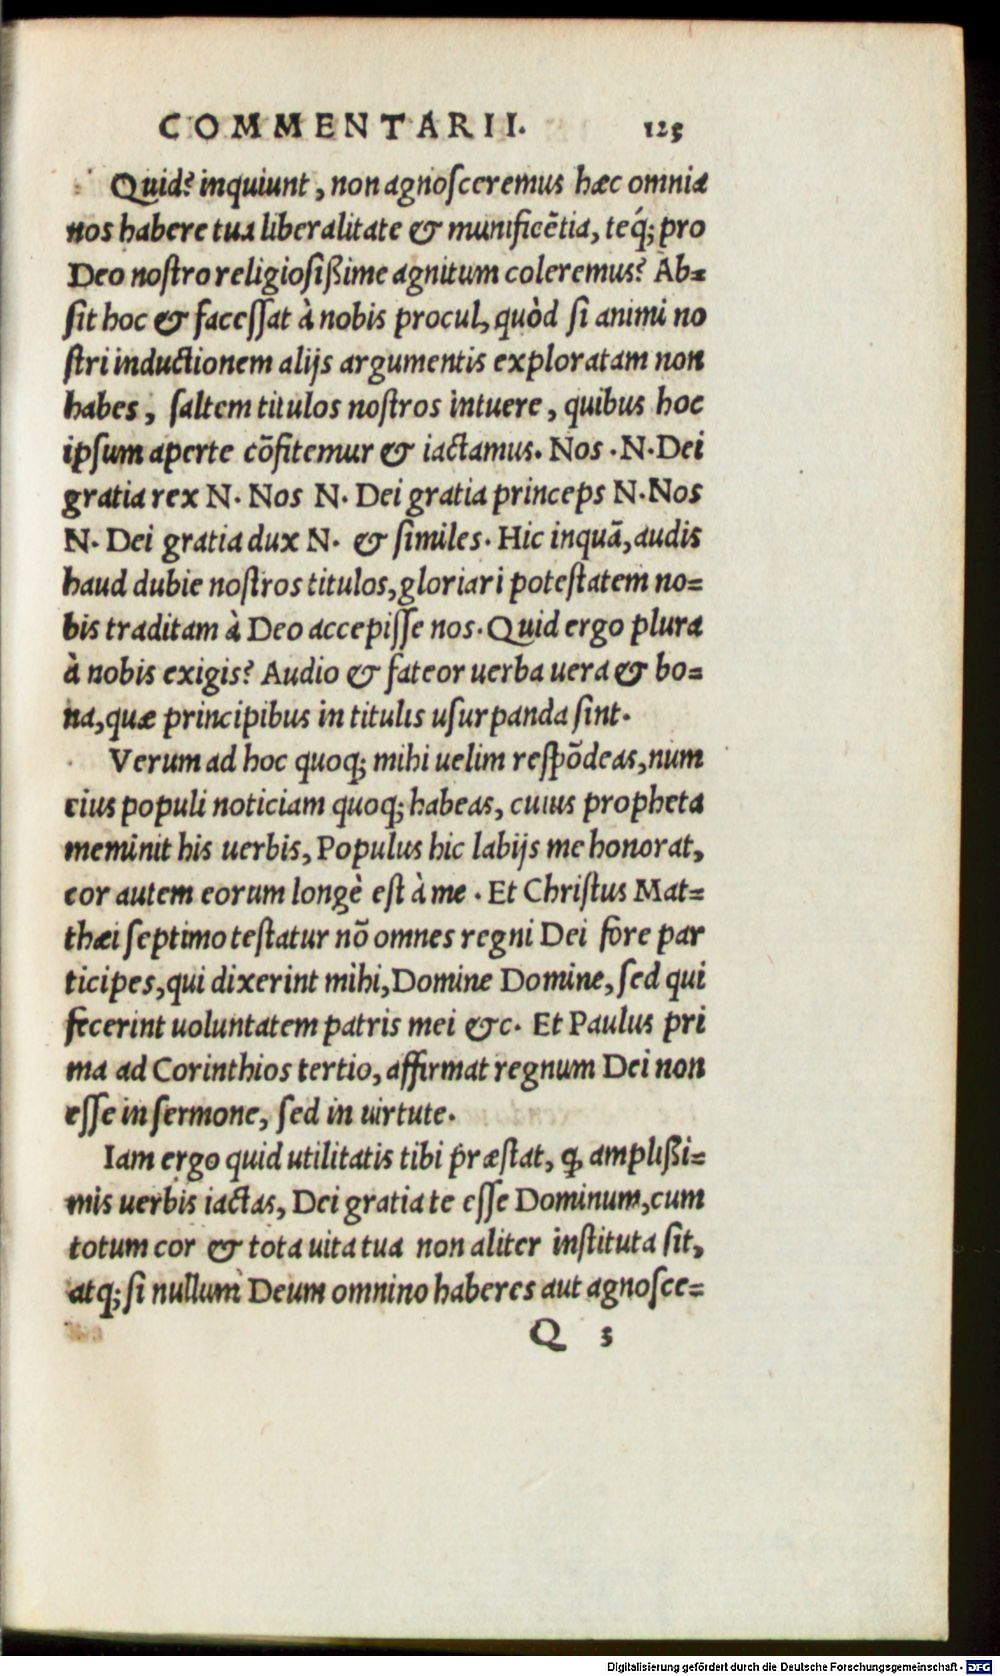 COMMENTARII. 125
Quid? inquiunt, non agnosceremus hæc omnia
nos habere tua liberalitate & munificẽtia, teq́; pro
Deo nostro religiosißime agnitum coleremus? Ab=
sit hoc & facessat à nobis procul, quòd si animi no
stri inductionem alijs argumentis exploratam non
habes, saltem titulos nostros intuere, quibus hoc
ipsum aperte cõfitemur & iactamus. Nos .N. Dei
gratia rex N. Nos N. Dei gratia princeps N. Nos
N. Dei gratia dux N. & similes. Hic inquã, audis
haud dubie nostros titulos, gloriari potestatem no=
bis traditam à Deo accepisse nos. Quid ergo plura
à nobis exigis? Audio & fateor uerba uera & bo=
na, quæ principibus in titulis usurpanda sint.
Verum ad hoc quoq; mihi uelim respõdeas, num
eius populi noticiam quoq; habeas, cuius propheta
meminit his uerbis, Populus hic labijs me honorat,
cor autem eorum longè est à me. Et Christus Mat=
thæi septimo testatur nõ omnes regni Dei fore par
ticipes, qui dixerint mihi, Domine Domine, sed qui
fecerint uoluntatem patris mei &c. Et Paulus pri
ma ad Corinthios tertio, affirmat regnum Dei non
esse in sermone, sed in uirtute.
Iam ergo quid utilitatis tibi præstat, ꝙ amplißi=
mis uerbis iactas, Dei gratia te esse Dominum, cum
totum cor & tota uita tua non aliter instituta sit,
atq; si nullum Deum omnino haberes aut agnosce=
Q 3
Digitalisierung gefördert durch die Deutsche Forschungsgemeinschaft - DFG